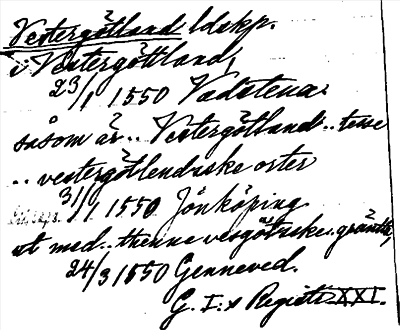 Vestergötland ldskp.
i Vestergöttland,
23/1 1550 Vadstena.
såsom är .. Vestergötland .. tesse
.. vestergötlendzske orter
31/1 1550 Jönköping
ut med .. thenne vesgötzske gräntze,
24/3 1550 Genneved.
G. I:s Registr. XXI.